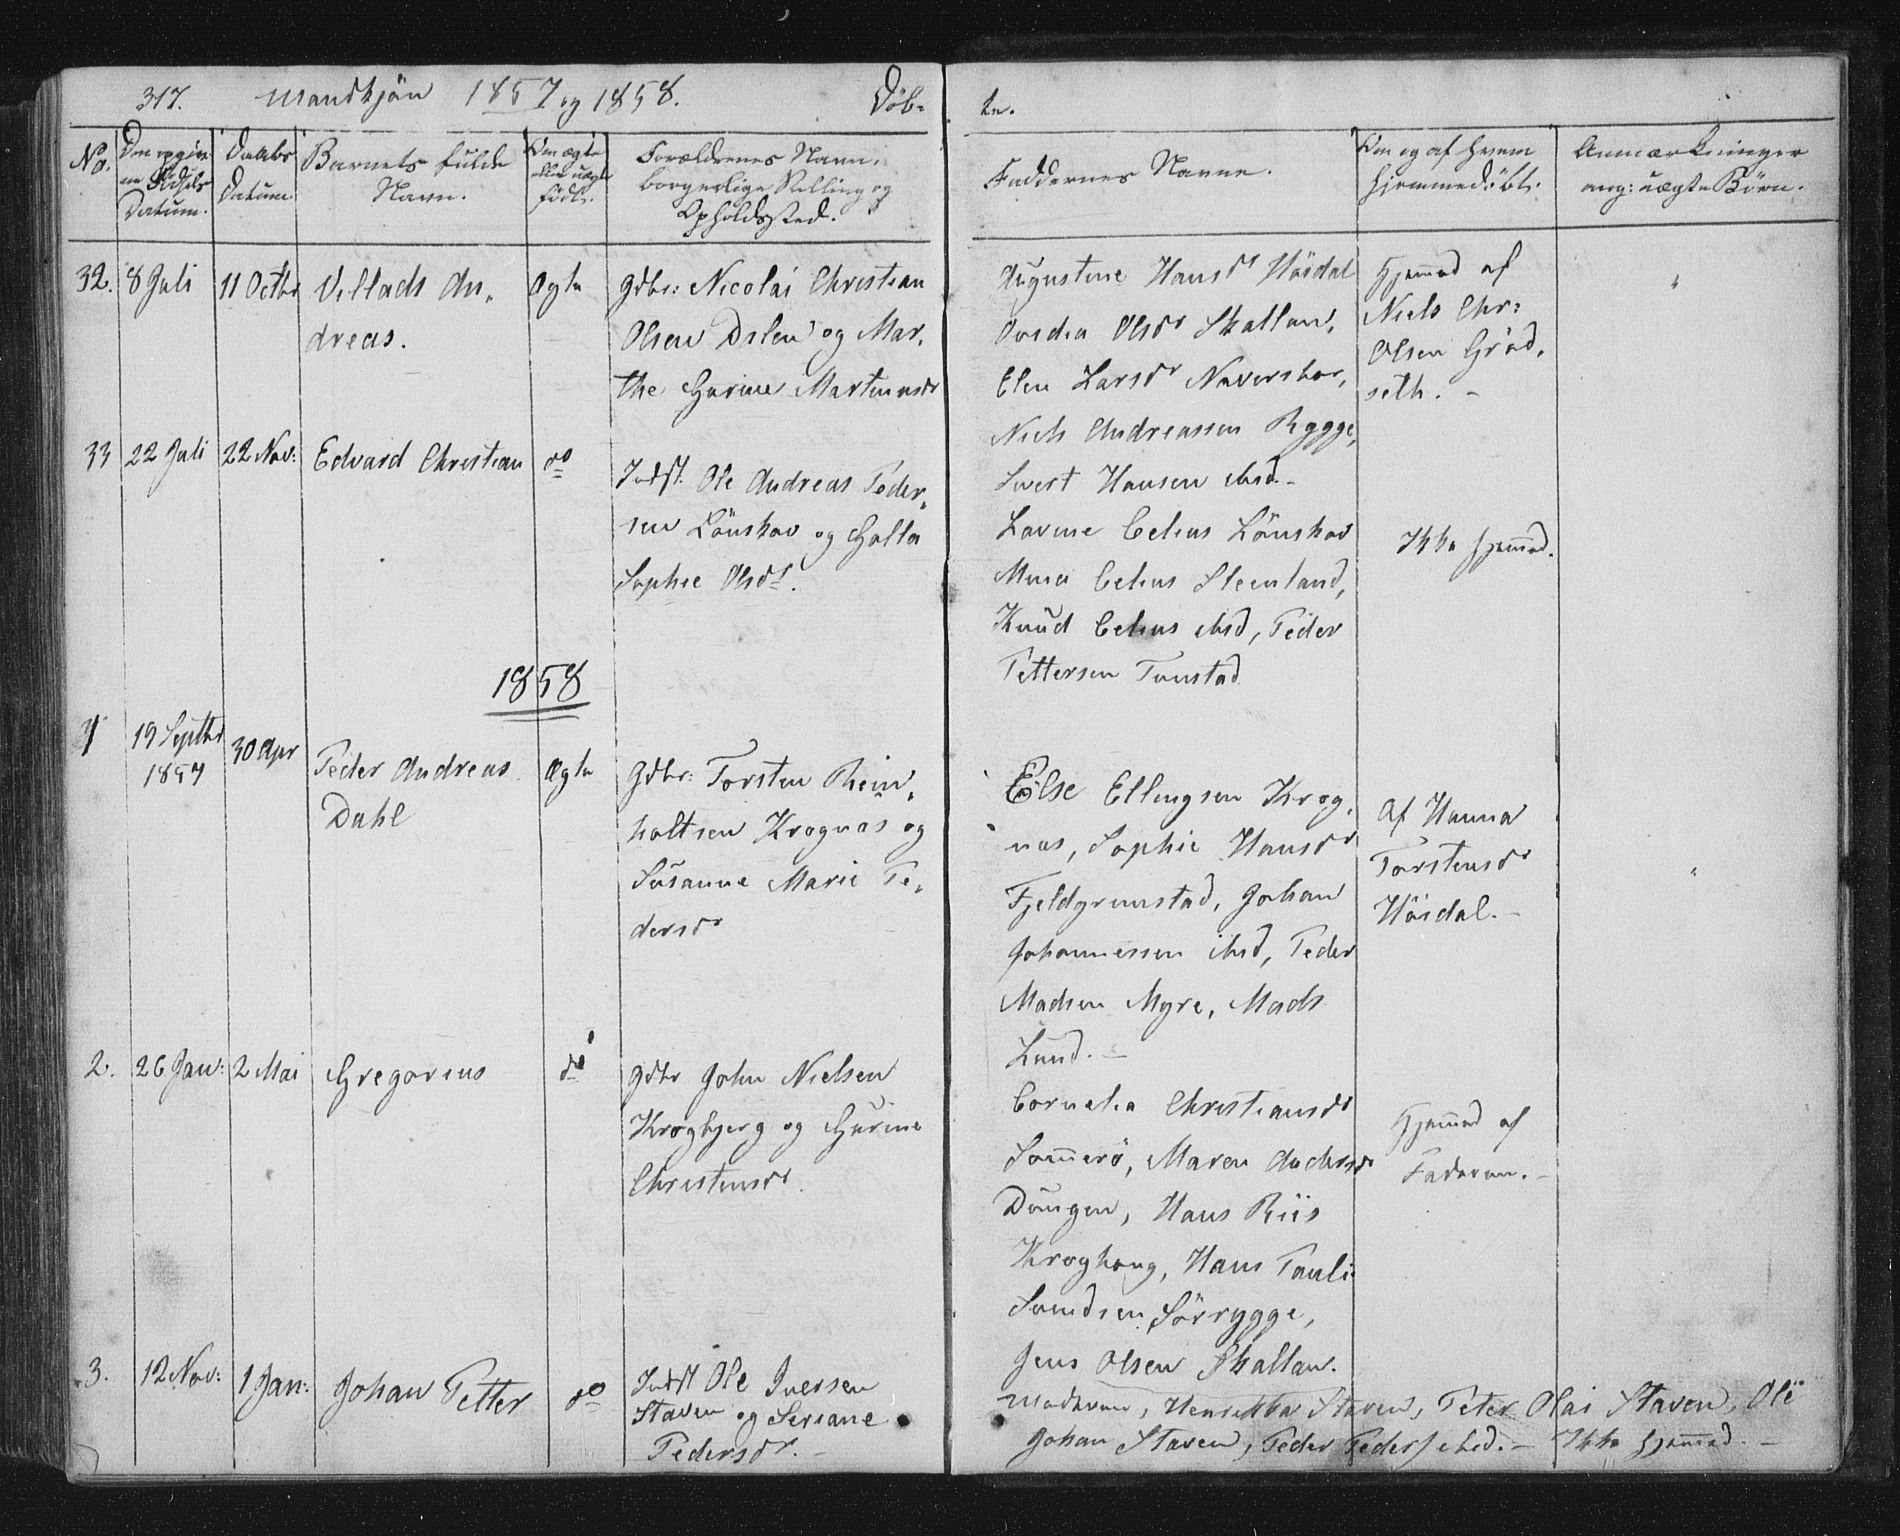 317. Mandkjön 1857 og 1858. Döb-
te.
No.
Den opgiv-
ne Födsels
Datum.
Daabs
Datum
Barnets fulde
Navn.
Om ægte
eller uægte
födt.
Forældrenes Navn,
borgerlige Stilling og
Opholdssted.
Faddernes Navne.
Om og af hvem
hjemmedöbt.
Anmærkninger
ang: uægte Börn.
32. 8 Juli 11 Octbr Villads An-
dreas.
Ægte
Gdbr: Nicolai Christian
Olsen Dalen og Mar-
the Gurine Martinusdr
Augustine Hansdr Höidal
Ovedia Olsdr Skallan,
Elen Larsdr
Niels Andreassen Rygge,
Sivert Hansen ibid.-
Hjemmed af
Niels Chr:
Olsen Gröd-
seth. -
"
33 22 Juli 22 Nov: Edvard Christian do
Indst. Ole Andreas Peder-
sen Lönskov og Golla
Sophie Olsdr.
Lavine Celius Lönskov
Celius Steenland,
Knud Celius ibid, Peder
Pettersen Tunstad
Ikke hjemmed.
1858
1 19 Septbr
1857
30 Apr
Peder Andreas
Dahl
Ægte
Gdbr: Torsten Rein-
holtsen Krognæs og
Susanne Marie Pe-
dersdr
Else Ellingsen Krog-
næs, Sophie Hansdr
Fjeldgrunstad, Johan
Johannessen ibid, Peder
Madsen Myre, Mads
Lund. -
Af Hanna
Torstensdr
Höidal. -
"
2. 26 Jan: 2 Mai Gregorius do
Gdbr John Nielsen
Krogbjerg og Gurine
Christensdr.
Cornelia Christiansdr
Sommerö, Maren Andersdr
Dungen, Hans Riis
Kroghaug, Hans Pauli
Svendsen Sörrygge,
Jens Olsen Skallan.
Hjemmed af
Faderen. -
3. 12 Nov: 1 Jan: Johan Petter do
Indst Ole Iversen
Staven og Seriane
Pedersdr. -
Moderen, Henrikka Staven, Peter Olai Staven, Ole
Johan Staven, Peder Peders ibid. - Ikke hjemmed. -